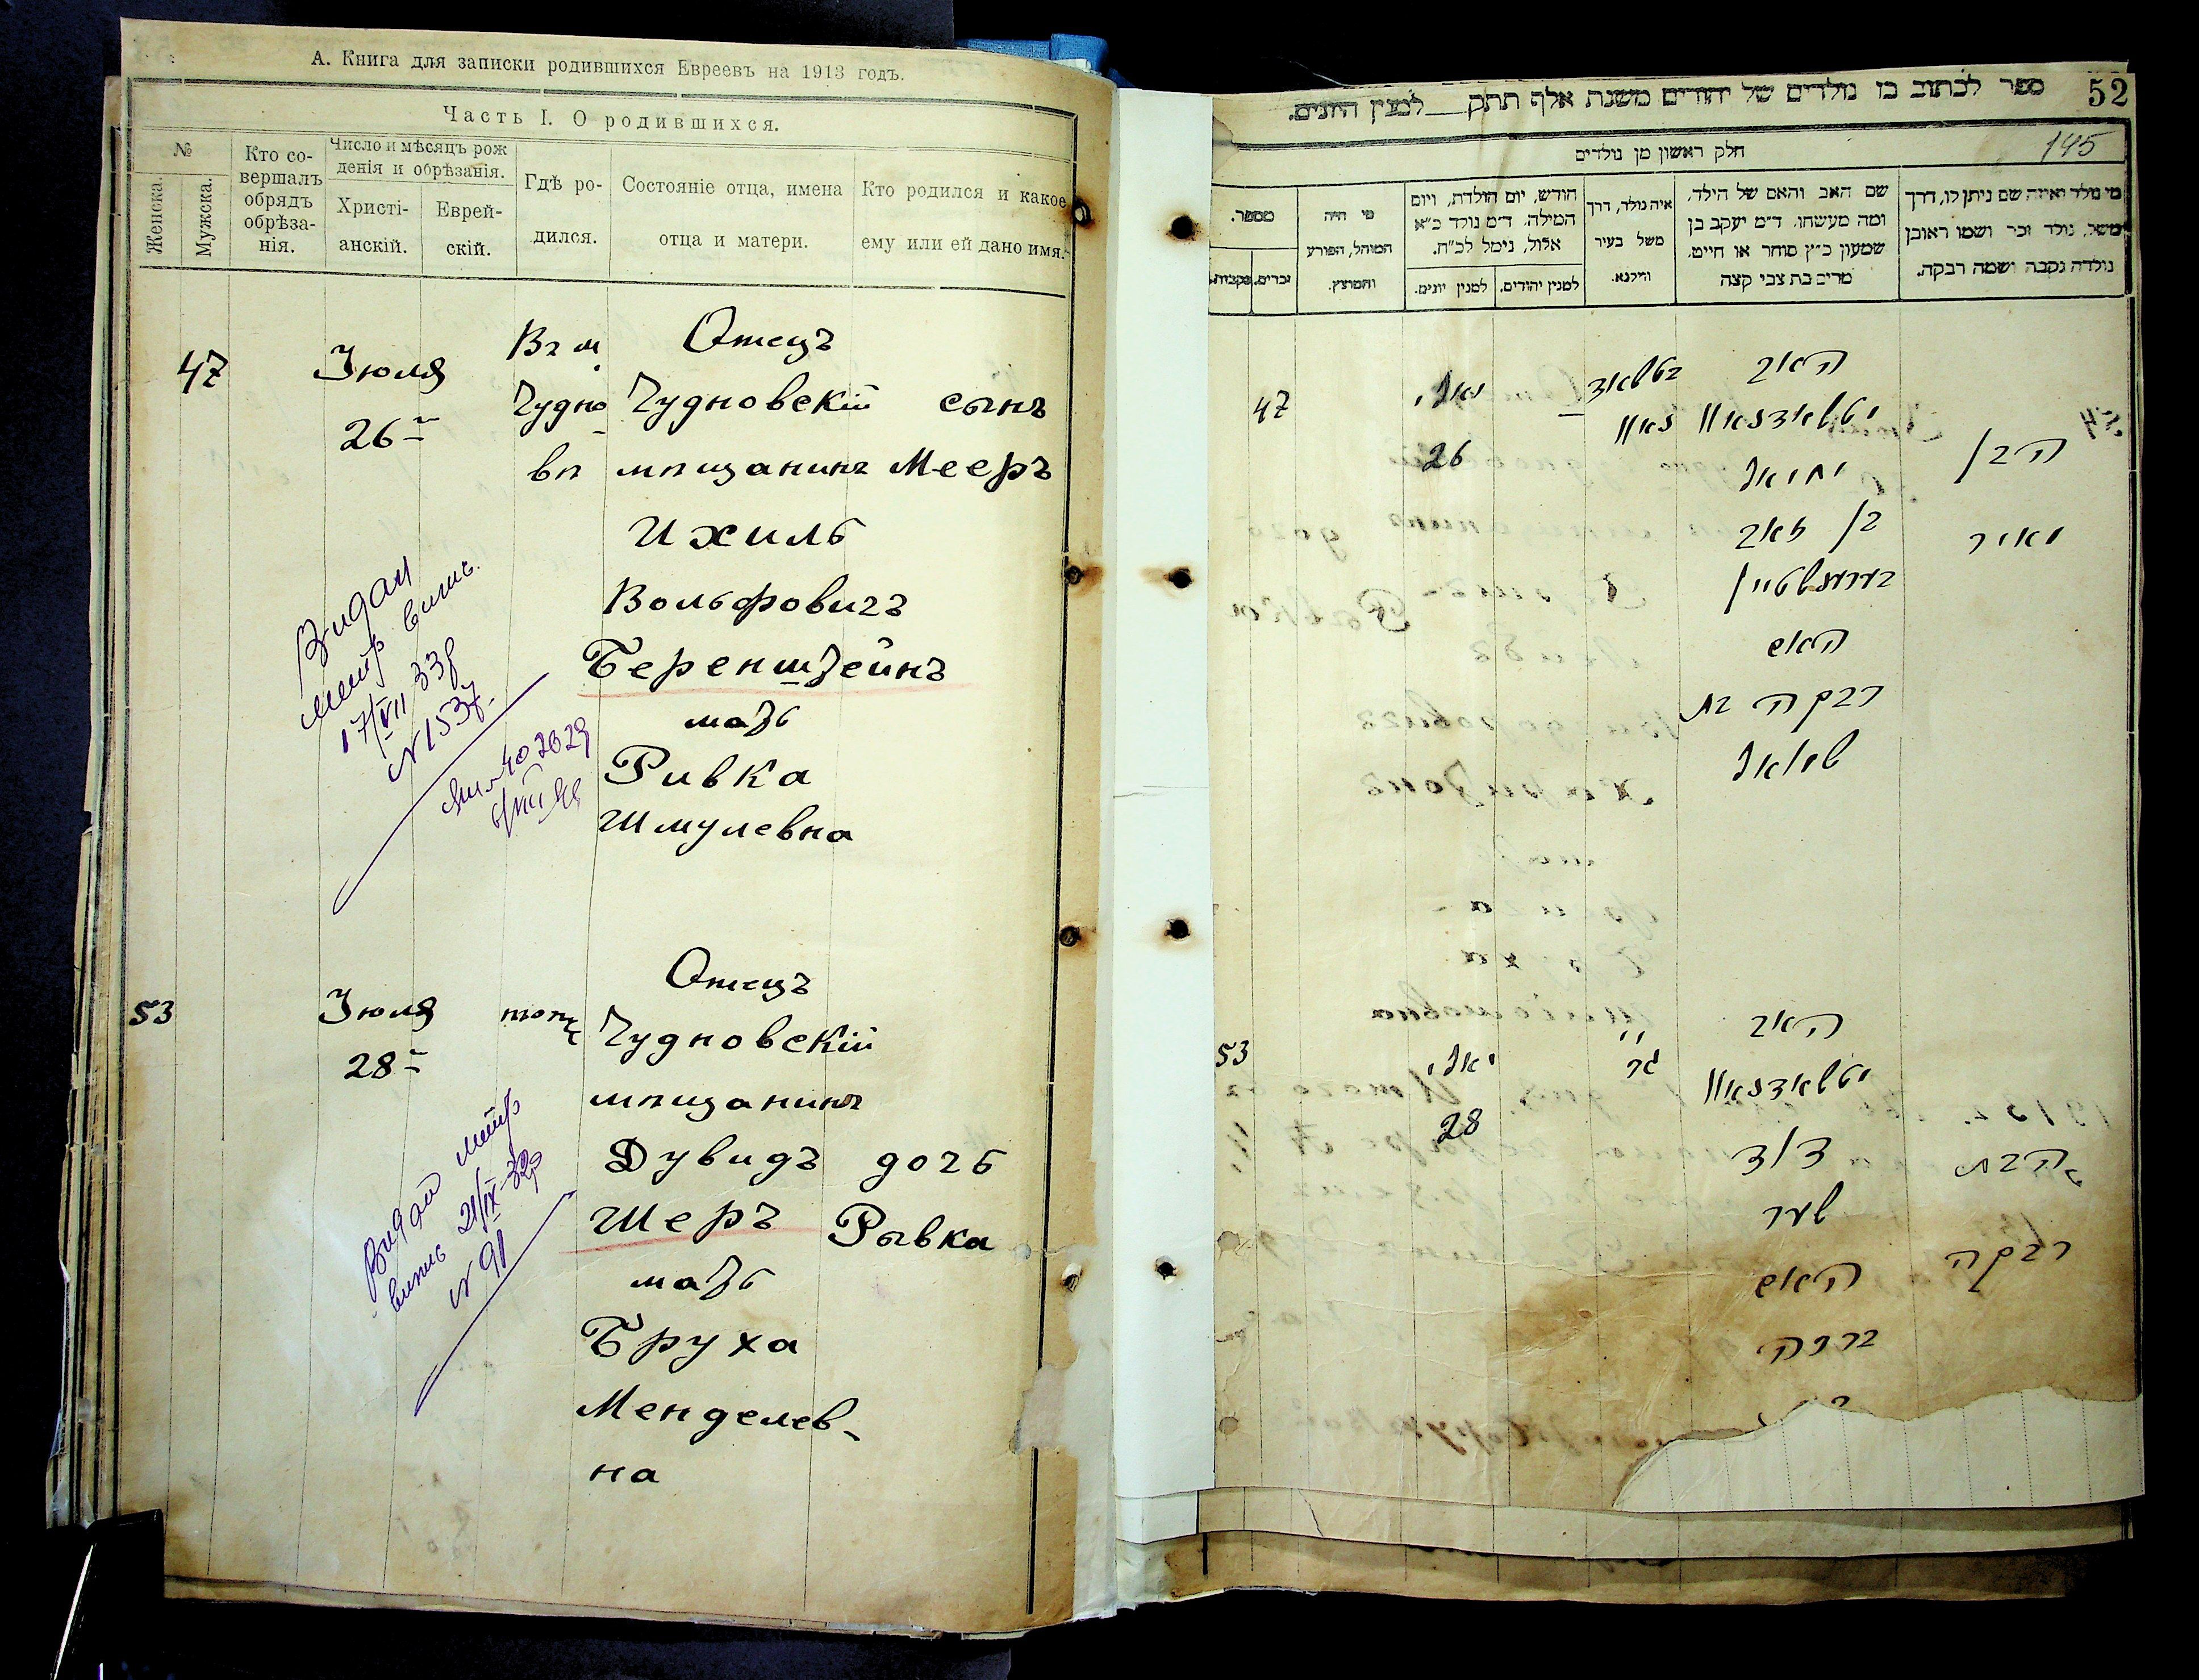 А. Книга для записки родившихся Евреевъ на 1913 годъ.
Часть I. О родившихся.
№
Женска.
Мужска.
Кто со-
вершалъ
обрядъ
обрѣза-
нія.
Число и мѣсяцъ рож
денія и обрѣзанія.
Христі-
анскій.
Еврей-
скій.
Гдѣ ро-
дился.
Состояніе отца, имена
отца и матери.
Кто родился и какое
ему или ей дано имя.
47
Іюля
26
Въ м
Чудно
вѣ
Отецъ
Чудновскій
мѣщанинъ
Ихиль
Вольфовичъ
Беренштейнъ
мать
Ривка
Шмулевна
сынъ
Мееръ
Видан
метр
17/VII 33 р
N 1537
53
Іюля
28
тоже
Отецъ
Чудновскій
мѣщанинъ
Дувидъ
Шеръ
мать
Бруха
Менделев-
на
дочь
Рывка
Видан метр
випис 21/IX-32р
N 91
52
ספר לכתוב בו נולדים של יהודים משנת אלף תתק לפנין היונים.
145
חלק ראשון מן נולדים
מי נולד ואיזה שם ניתן לו, דרך
משל, נולד זכר ושמו ראובן
נולדה נקבה ושמה רבקה.
שם האב והאם של הילד,
ומה מעשהו, ד״מ יעקב בן
שמעון כ״ץ סוחר או חייט,
מרים בת צבי קצה
איה נולד, דרך
משל בעיר
ווילנא.
חודש, יום הולדת, ויום
המילה, ד״מ נולד כ״א
אלול, נימל לכ״ח.
למנין יהודים.
למנין יונים.
מי היה
המוהל, הפורע
והמוצץ.
מספר.
זכרים.
נקבות.
47
יאלי
26
האב
יחיאל
בן זאב
בערענשטיין
האם
רבקה בת
שמואל
הבן
מאיר
53
יאלי
28
האב
דוד
שער
האם
ברכה
הבת
רבקה